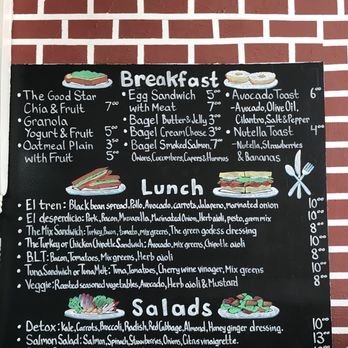 Breakfast
• The Good Star
Chia & Fruit 7⁰⁰
• Granola
Yogurt & Fruit 5⁰⁰
• Oatmeal Plain 3⁰⁰
with Fruit 5⁰⁰
• Egg Sandwich 5⁰⁰
with Meat 7⁰⁰
• Bagel Butter & Jelly 3⁰⁰
• Bagel Cream Cheese 3⁰⁰
• Bagel Smoked Salmon, 7⁰⁰
Onions, Cucumbers, Capers & Hummus
• Avocado Toast 6⁰⁰
-Avocado, Olive Oil,
Cilantro, Salt & Pepper
• Nutella Toast 4⁰⁰
-Nutella, Strawberries
& Bananas
Lunch
• El tren: Black bean spread, Avocado, carrots, Jalapeno, marinated onion 10⁰⁰
• El desperdicio: Pork, Bacon, Mozzarella, Marinated Onion, Herb aioli, pesto, green mix 10⁰⁰
• The Mix Sandwich: Turkey, Bacon, tomato, mix greens, The green godess dressing 10⁰⁰
• The Turkey or Chicken Chipotle Sandwich: Avocado, mix greens, Chipotle aioli 10⁰⁰
• BLT: Bacon, Tomatoes, Mix greens, Herb aioli 8⁰⁰
• Tuna Sandwich or Tuna Melt: Tuna, Tomatoes, Cherry wine vinager, Mix greens 10⁰⁰
• Veggie: Roasted seasoned vegetables, Avocado, Herb aioli & Mustard 8⁰⁰
Salads
• Detox: Kale, Carrots, Broccoli, Radish, Red Cabbage, Almond, Honey ginger dressing. 10⁰⁰
• Salmon Salad: Salmon, Spinach, Strawberries, Onions, Citrus vinaigrette. 13⁰⁰